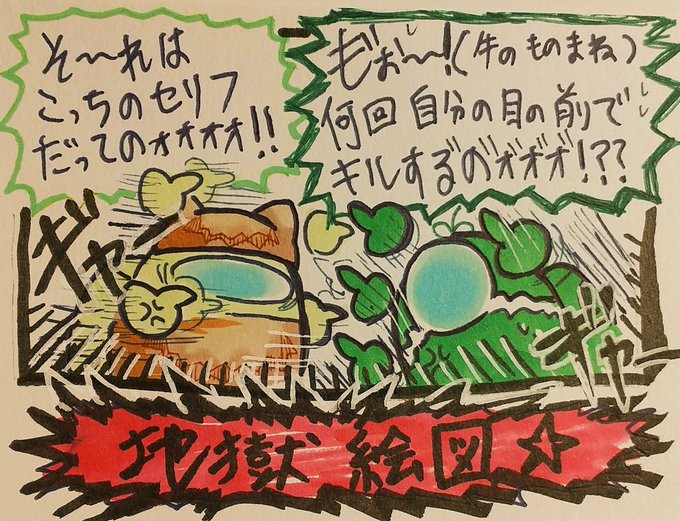 もぉ〜!(牛のものまね)
何回自分の目の前で
キルするのオ゛オ゛オ゛!??
そ〜れは
こっちのセリフ
だってのォォォォ!!
ギャー
ギャー
地獄絵図☆